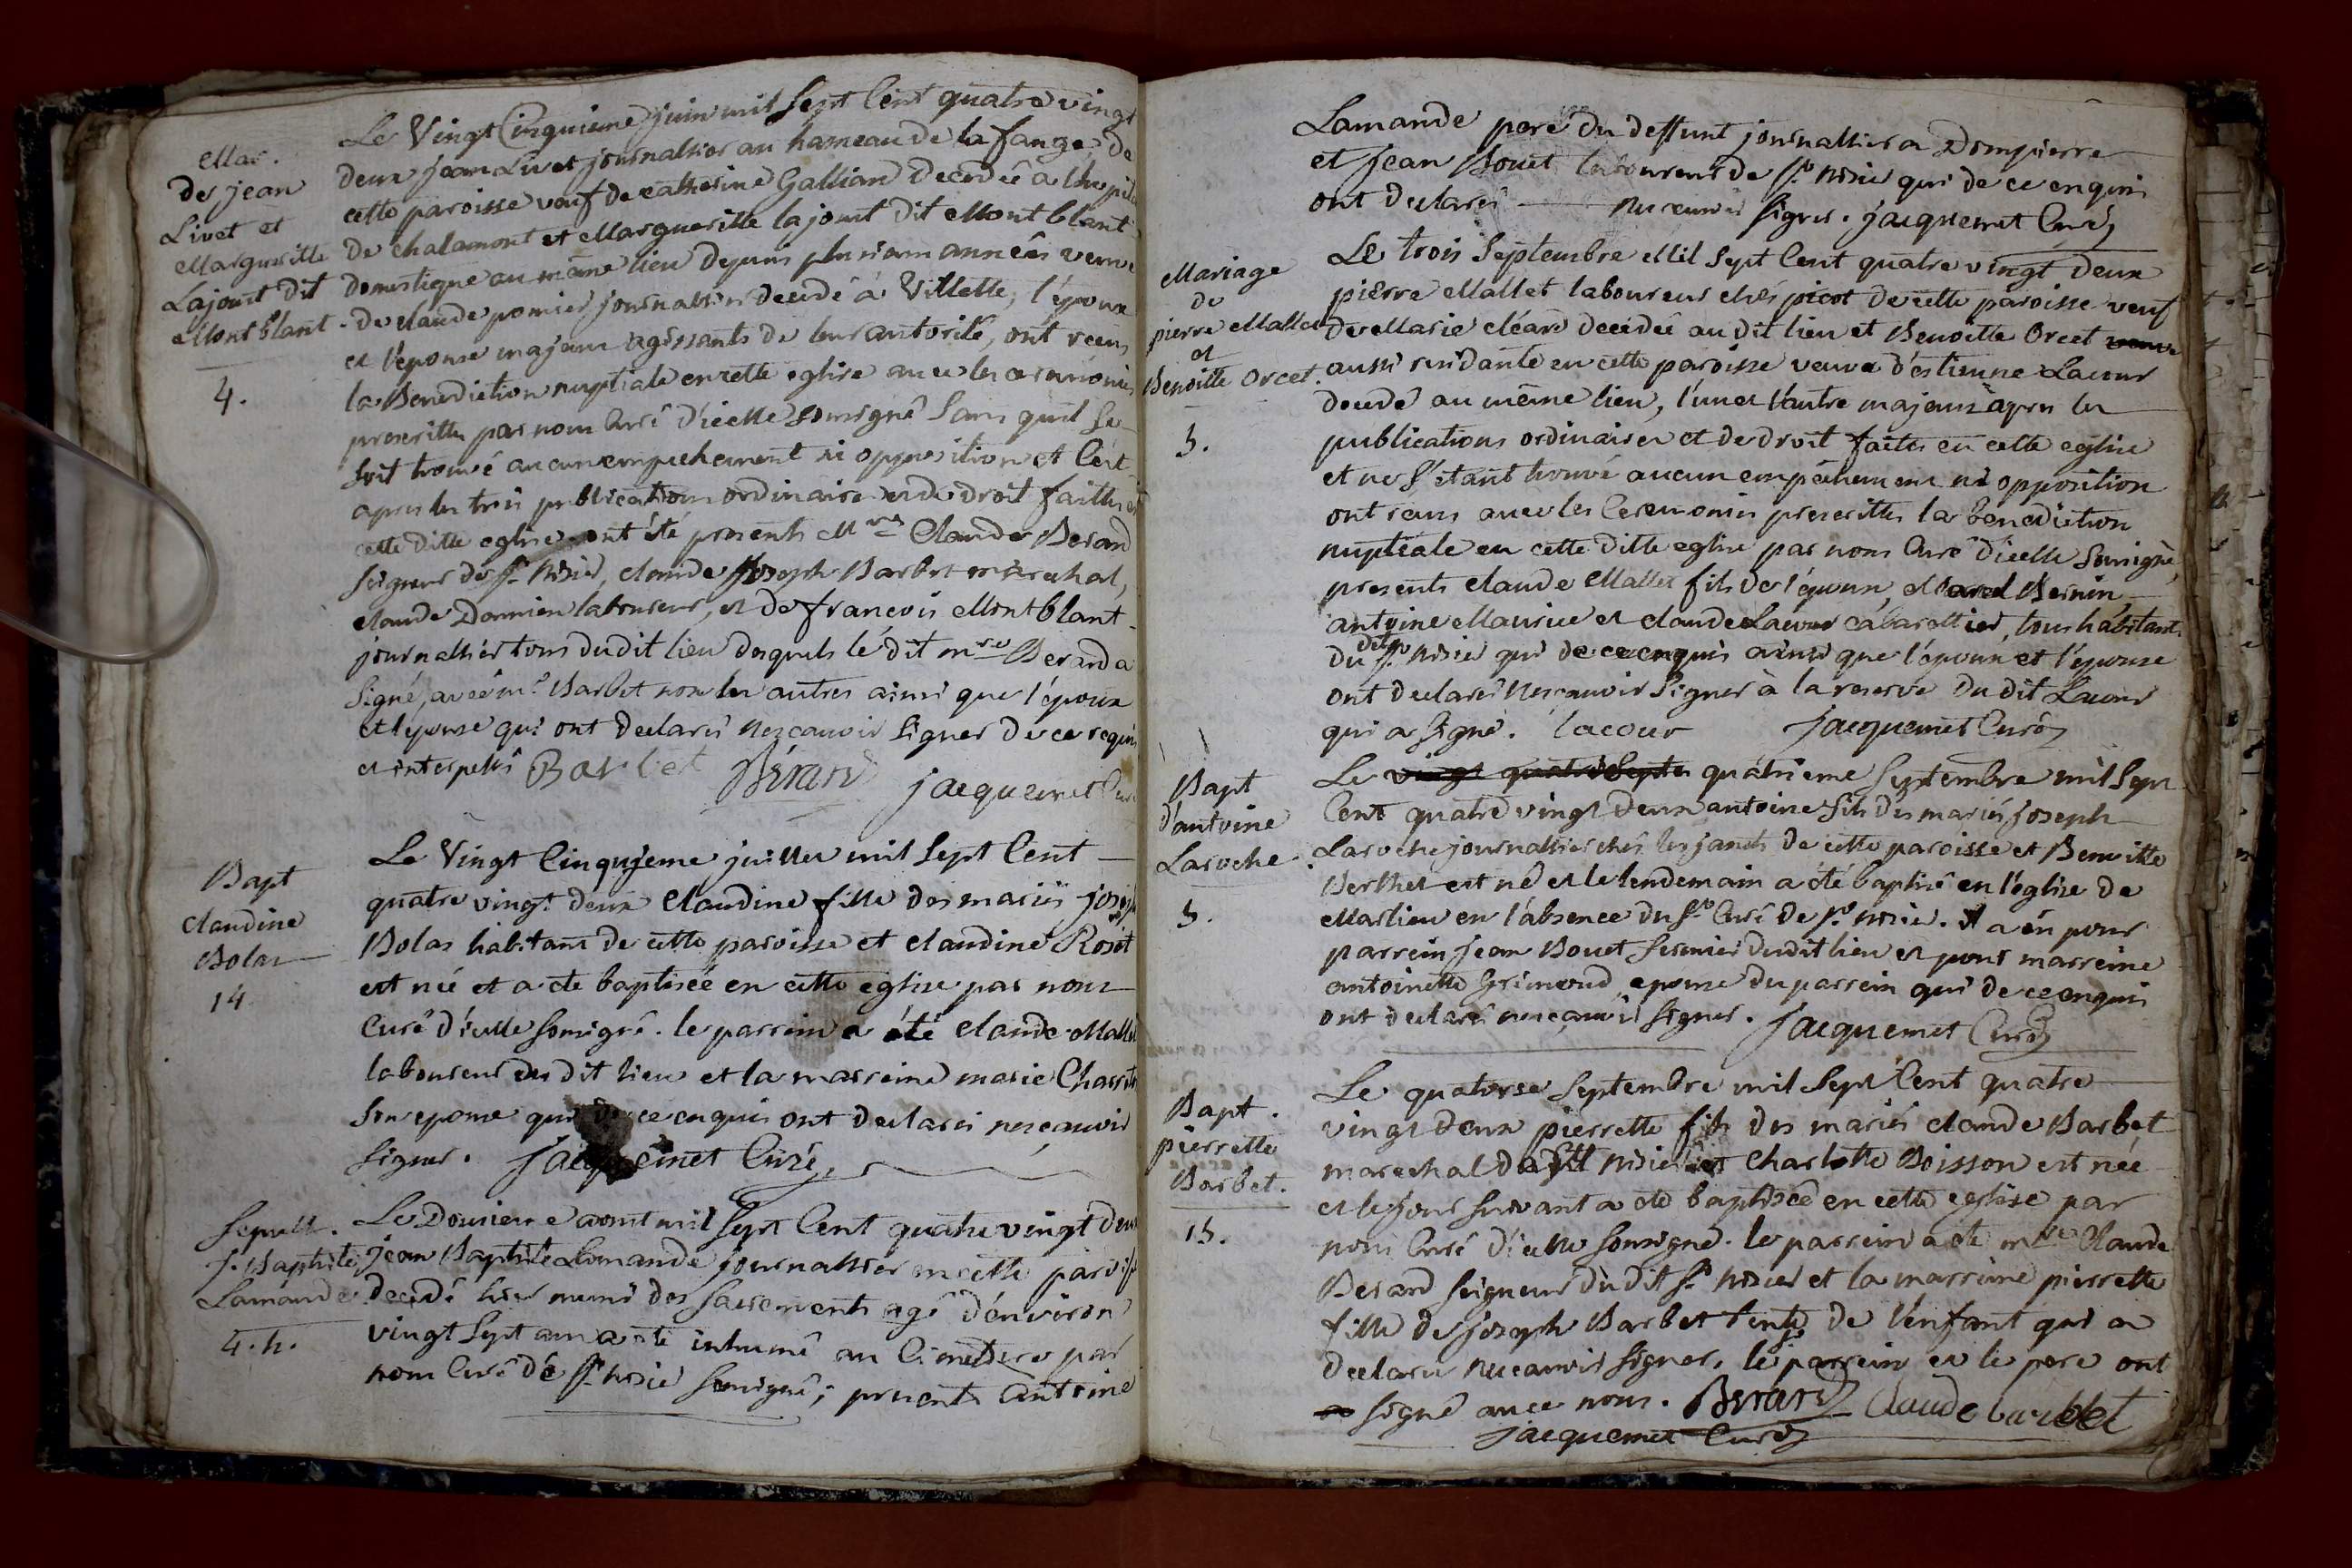 Mar.
de jean
Livet et
Margueritte
Lajount dit
Montblant
4.
Le Vingt Cinquieme juin mil Sept Cent quatre vingt
deux jean Livet journallier au hameau de la fange de
cette paroisse veuf de catherine Gallian decedée a l'hopital
de chalamont et Margueritte lajount dit Montblant
domestique au même lieu depuis plusieurs années veuve
de claude pomier journallier decedé à Villette, l'époux
et l'épouse majeurs agissants de leur autorité, ont reçus
la Benediction nuptiale en cette eglise avec les ceremonies
prescrittes par nous Curé d'icelle soussigné Sans quil Se
soit trouvé aucun empechement ni opposition et Cest
apres les trois publications ordinaires et de droit faittes en
cette ditte eglise ont été presents Mre Claude Berard
seigneur de St. Nisier, claude Joseph Barbet marechal,
claude Damien laboureur, et de francois Montblant
journallier tous dudit lieu desquels le dit mre Berard a
Signé, avec mr. Barbet non les autres ainsi que l'époux
et l'epouse qui ont declaré nesçavoir Signer de ce requis
et interpellés Barbet Bérard jacquemet Curé
Bapt
claudine
Bolas
14
Le Vingt Cinquieme juillet mil Sept Cent
quatre vingt deux Claudine fille des mariés joseph
Bolas habitant de cette paroisse et claudine Rosét
est née et a été baptisée en cette eglise par nous
Curé d'icelle Sousigné. le parrein a été Claude Mallet
laboureur du dit lieu et la marreine marie Charité
Son epouse qui de ce enquis ont declarés nesçavoir
Signer. Jacquemet Curé
Sepult.
J. Baptiste
Lamande
4. h.
Le Douzieme aoust mil Sept Cent quatre vingt deux
jean Baptiste Lamande journallier en cette paroisse
decedé hier muni des Sacrements agé d'environ
vingt Sept ans a été inhumé au Cimetiere par
nous Curé de St. Nisier Sousigné; presents Antoine
Lamande pere du deffunt journallier a Dompierre
et Jean Bouet laboureur de St. Nisier qui de ce enquis
ont declarés nescavoir signer. jacquemet Curé
Mariage
de
pierre Mallet
et
Benoitte Orcet.
5.
Le trois Septembre Mil Sept Cent quatre vingt deux
pierre Mallet laboureur chés picot de cette paroisse veuf
de Marie cléard decedée au dit lieu et Benoitte Orcet veuve
aussi residante en cette paroisse veuve d'estienne Lacour
decedé au même lieu, l'un et l'autre majeurs apres les
publications ordinaires et de droit faites en cette eglise
et ne S'étant trouvé aucun empéchement ni opposition
ont reçus avec les Ceremonies prescrittes la benediction
nuptiale en cette ditte eglise par nous Curé d'icelle Sousigné,
presents claude Mallet fils de l'époux, Bernin
antoine Maurice et claude Lacour cabarettier, tous habitants
du dit St. Nisier qui de ce enquis ainsi que l'époux et l'épouse
ont declaré Nesçavoir Signer à la reserve du dit Lacour
qui a Signé. lacour Jacquemet Curé
Bapt
d'antoine
Laroche
5.
Le vingt quatre Septe quatrieme Septembre mil Sept
Cent quatre vingt deux antoine fils des mariés joseph
Laroche journallier chés les jants de cette paroisse et Benoitte
Berthet est né et le lendemain a été baptisé en l'eglise de
Marlieu en l'absence du Sr. Curé de St. Nisier. Il a eu pour
parrein Jean Bouet fermier dudit lieu et pour marreine
antoinette Grimoud epouse du parrein qui de ce enquis
ont declaré nesçavoir Signer. Jacquemet Curé
Bapt.
pierrette
Barbet.
15.
Le quatorse Septembre mil Sept Cent quatre
vingt deux pierrette fils des mariés claude Barbet
marechal de St Nisier et Charlotte Boisson est née
et le jour suivant a été baptisée en cette eglise par
nous Curé d'icelle Sousigné. le parrein a été mre Claude
Berard Seigneur du dit St. Nisier et la marreine pierrette
fille de joseph Barbet tente de l'enfant qui a
declaré nescavoir signer. le parrein et le pere ont
signé avec nous. Berard Claude barbet
jacquemet Curé